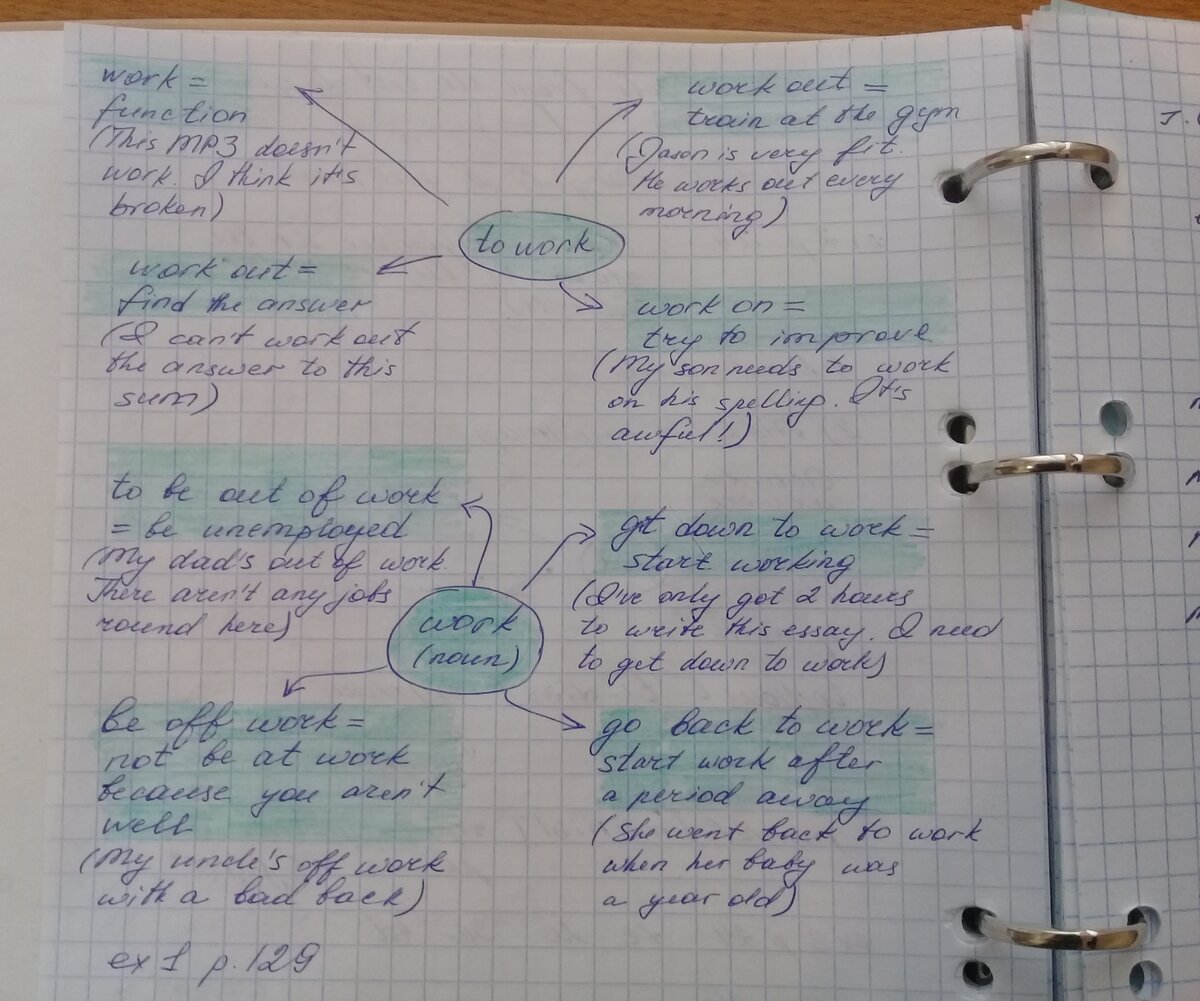 work =
function
(This MP3 doesn't
work. I think it's
broken)
work out =
train at the gym
(Jason is very fit.
He works out every
morning)
to work
work out =
find the answer
(I can't work out
the answer to this
sum)
work on =
try to improve
(My son needs to work
on his spelling. It's
awful!)
to be out of work
= be unemployed
(My dad's out of work.
There aren't any jobs
round here)
get down to work =
start working
(I've only got 2 hours
to write this essay. I need
to get down to work)
work
(noun)
be off work =
not be at work
because you aren't
well
(My uncle's off work
with a bad back)
go back to work =
start work after
a period away
(She went back to work
when her baby was
a year old)
ex 1 p. 129